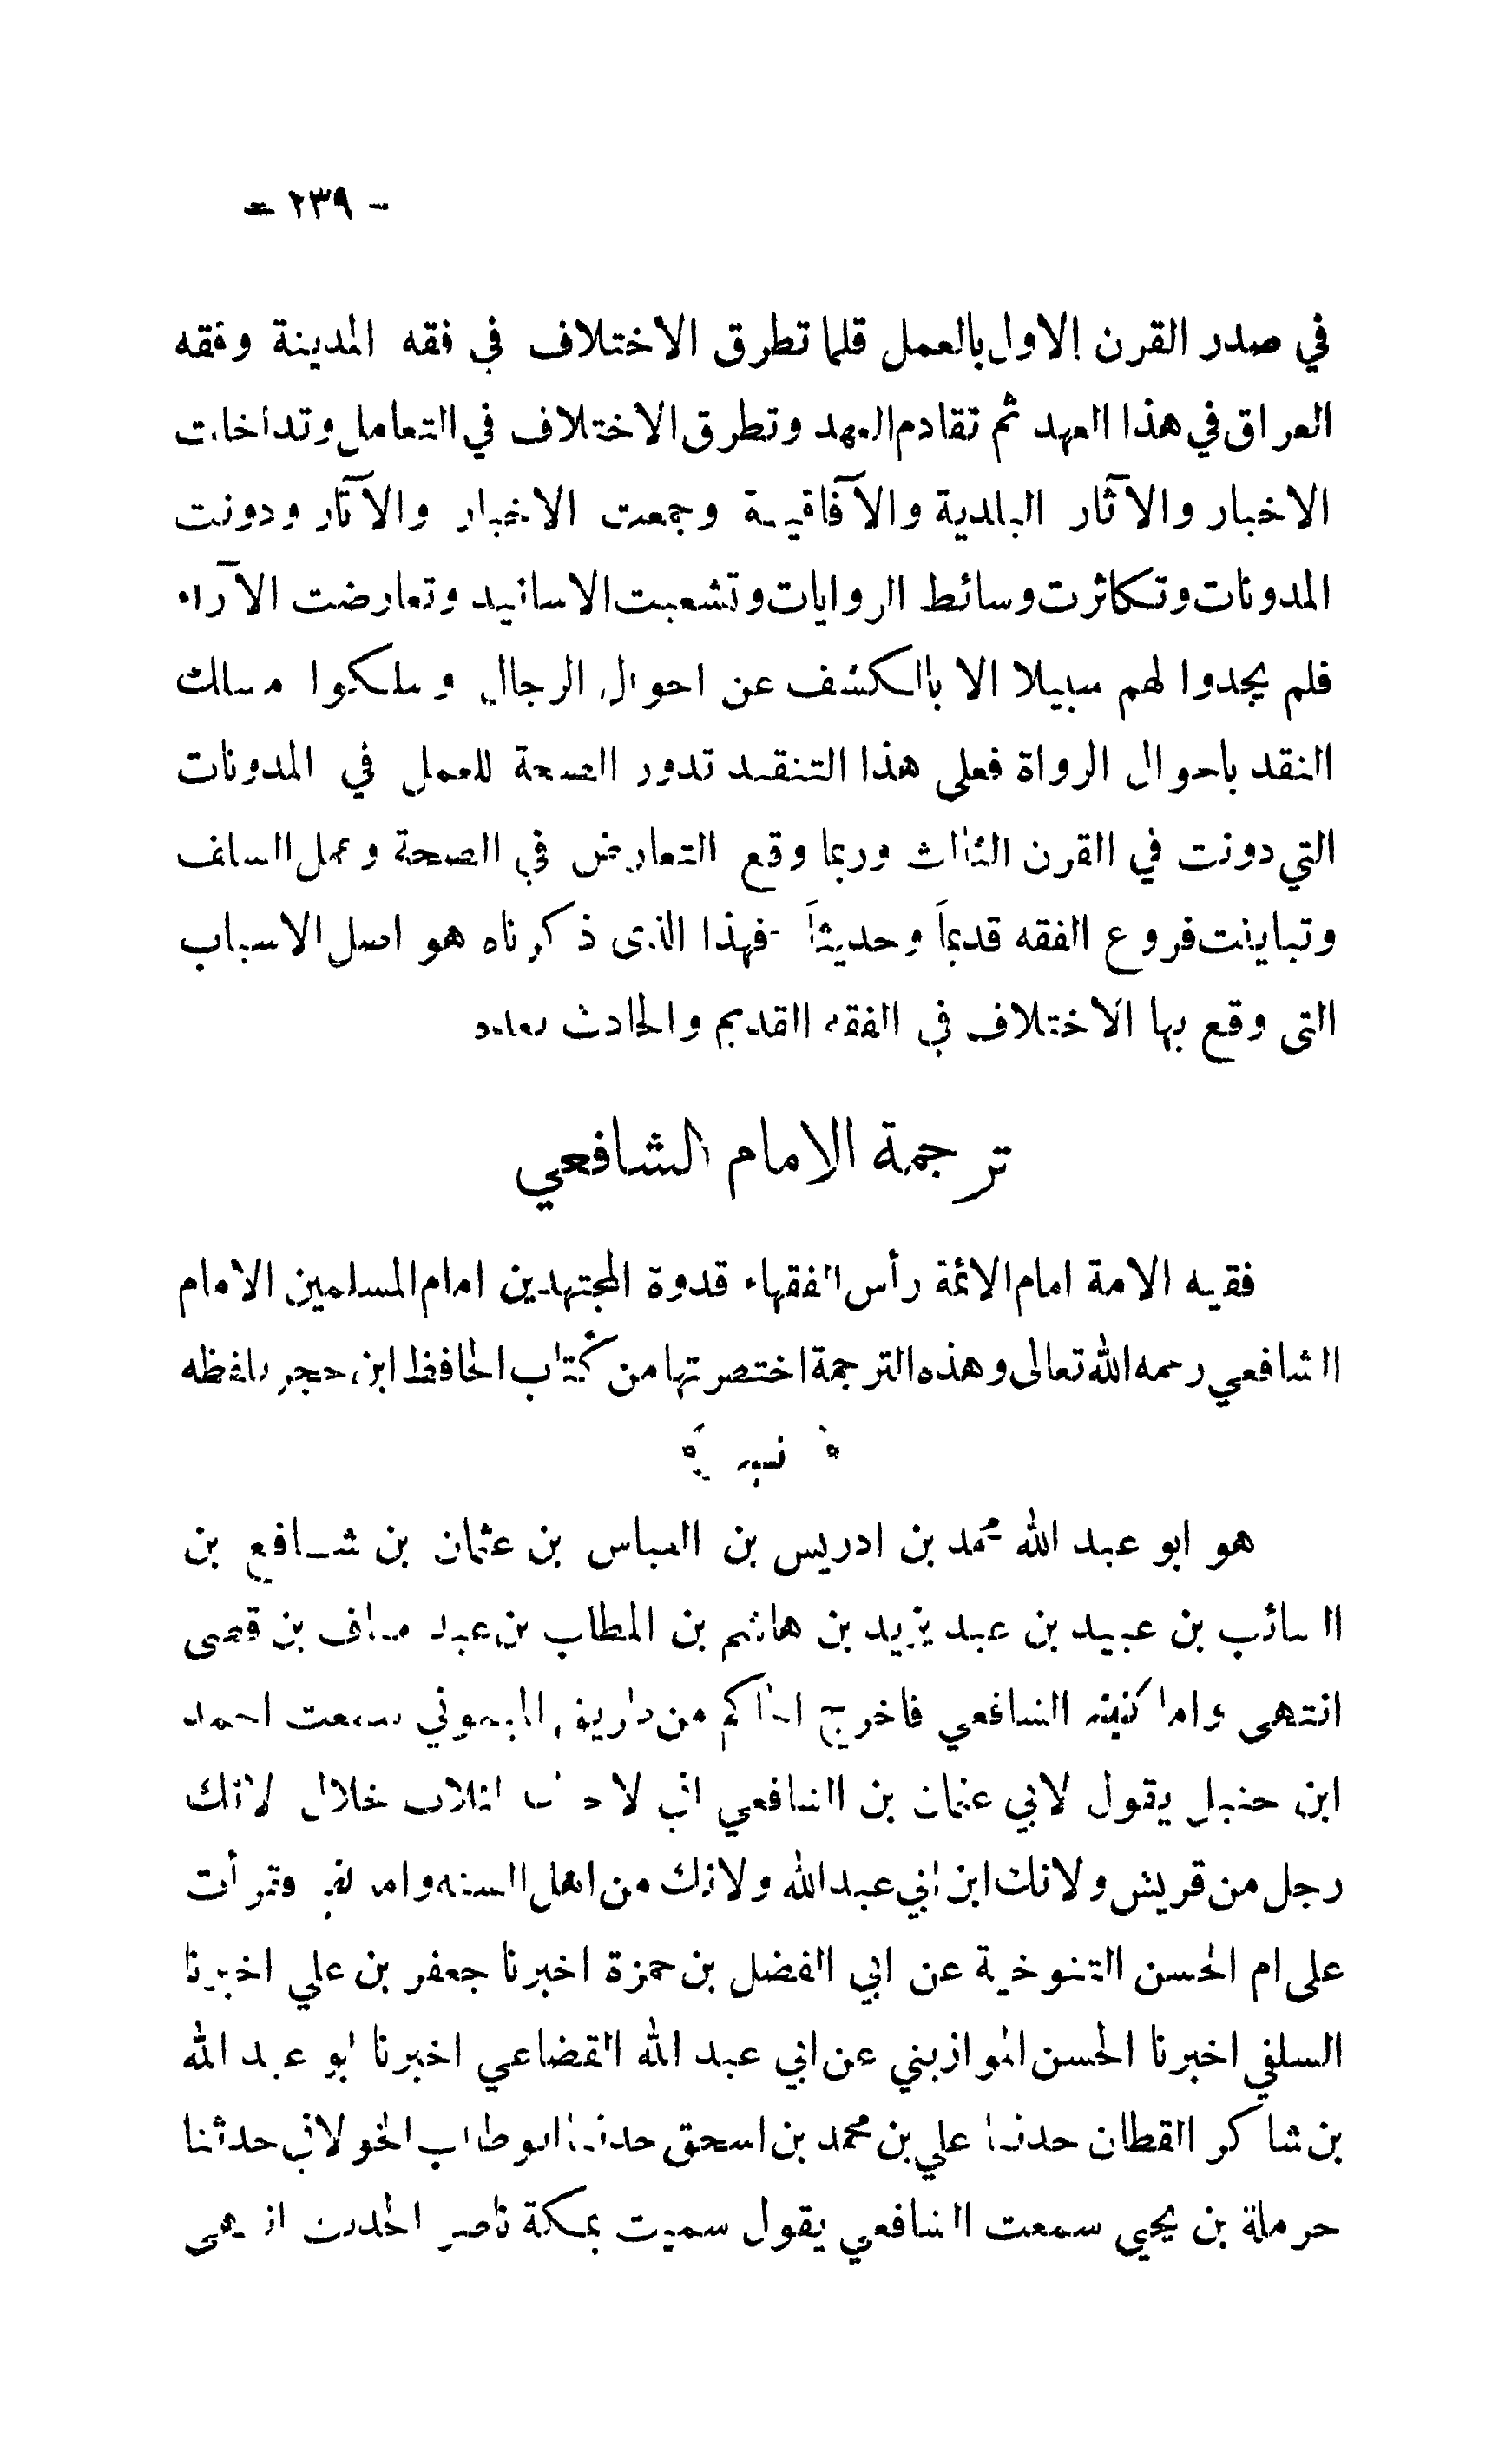 - ٢٣٩ -
في صدر القرن الاول بالعمل قلما تطرق الاختلاف في فقه المدينة وفقه
العراق في هذا العهد ثم تقادم العهد وتطرق الاختلاف في التعامل وتداخلت
الاخبار والآثار البلدية والآفاقيـة وجمعت الاخبار والآثار ودونت
المدونات وتكاثرت وسائط الروايات وتشعبت الاسانيد وتعارضت الآراء
فلم يجدوا لهم سبيلا الا بالكشف عن احوال الرجال وسلكوا مسالك
النقد باحوال الرواة فعلى هذا التنقد تدور الصحة للعمل في المدونات
التي دونت في القرن الثالث وربما وقع التعارض في الصحة وعمل السلف
وتباينت فروع الفقه قديماً وحديثاً - فهذا الذى ذكرناه هو اصل الاسباب
التى وقع بها الاختلاف في الفقه القديم والحادث بعده
ترجمة الامام الشافعي
فقيه الامة امام الائمة رأس الفقهاء قدوة المجتهدين امام المسلمين الامام
الشافعي رحمه الله تعالى وهذه الترجمة اختصرتها من كتاب الحافظ ابن حجر بلفظه
﴿ نسبه ﴾
هو ابو عبد الله محمد بن ادريس بن العباس بن عثمان بن شـافع بن
السائب بن عبيد بن عبد يزيد بن هاشم بن المطلب بن عبد مناف بن قصى
انتهى واما كنيته الشافعي فاخرج الحاكم من طريق الميموني سمعت احمد
ابن حنبل يقول لابي عثمان بن الشافعي اني لا حبك لثلاث خلال لانك
رجل من قريش ولانك ابن ابي عبد الله ولانك من اهل السنه وقرأت
على ام الحسن التنوخية عن ابي الفضل بن حمزة اخبرنا جعفر بن علي اخبرنا
السلفي اخبرنا الحسن الموازيني عن ابي عبد الله القضاعي اخبرنا ابو عبد الله
بن شاكر القطان حدثنا علي بن محمد بن اسحق حدثنا ابو طالب الخولاني حدثنا
حرملة بن يحيى سمعت الشافعي يقول سميت بمكة ناصر الحديث